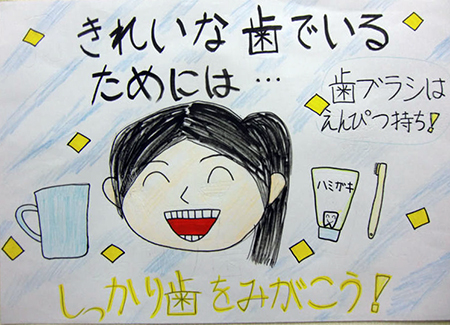 きれいな歯でいる
ためには…
歯ブラシは
えんぴつ持ち!
ハミガキ
しっかり歯をみがこう!